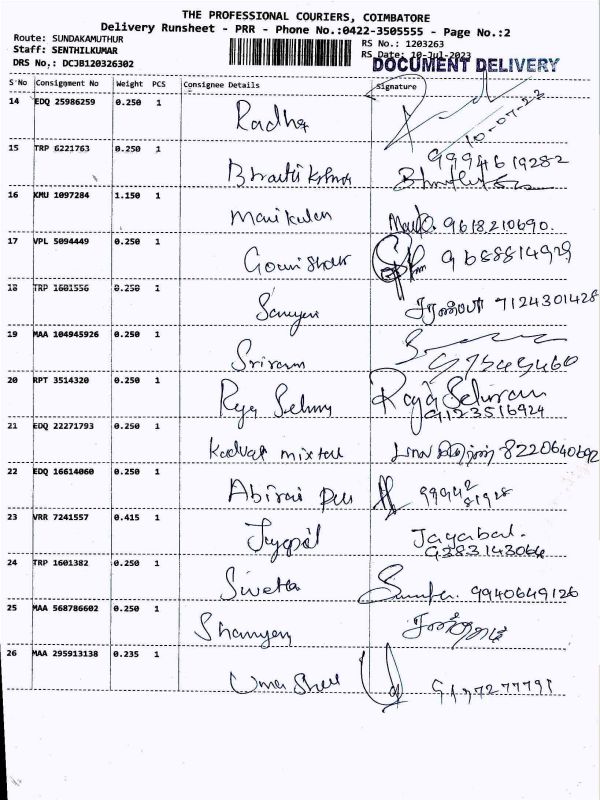 THE PROFESSIONAL COURIERS, COIMBATORE
Delivery Runsheet - PRR - Phone No.:0422-3505555 - Page No.:2
Route: SUNDAKAMUTHUR
RS No.: 1203263
Staff: SENTHILKUMAR
RS Date: 10-Jul-2023
DRS No.: DCJB120326302
DOCUMENT DELIVERY
S'No Consignment No Weight PCS Consignee Details Signature
14 EDQ 25986259 0.250 1 Radha
10-07-23
15 TRP 6221763 0.250 1 9994619282
16 KMU 1097284 1.150 1 9618210690.
17 VPL 5094449 0.250 1 9688814929
18 TRP 1601556 0.250 1 7124301428
19 MAA 104945926 0.250 1 Sriram
20 RPT 3514320 0.250 1 Raja Selvam
9123516924
21 EDQ 22271793 0.250 1 8220640692
22 EDQ 16614060 0.250 1 Abirai 99942
81928
23 VRR 7241557 0.415 1 Jaypal Jayabal.
9383143064
24 TRP 1601382 0.250 1 Swetha 9940649126
25 MAA 568786602 0.250 1
26 MAA 295913138 0.235 1